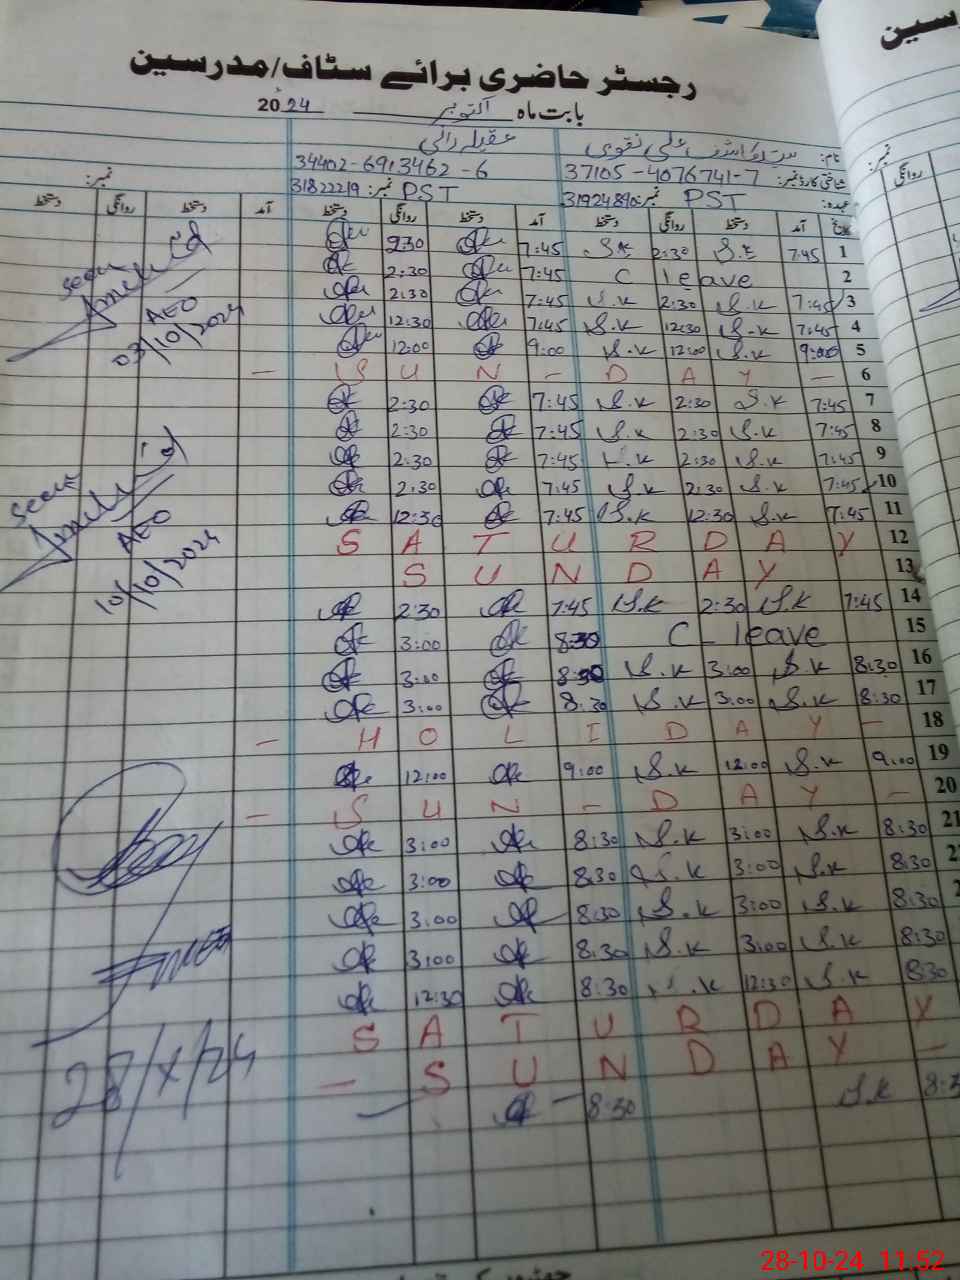 رجسٹر حاضری برائے سٹاف/مدرسین
بابت ماہ اکتوبر 2024
نام: علی نقوی
شناختی کارڈ نمبر: 37105-4076741-7 34402-6913462-6
عہدہ: PST نمبر: PST نمبر: 31822219 نمبر:
تاریخ آمد دستخط روانگی دستخط آمد دستخط روانگی دستخط آمد دستخط روانگی دستخط
1 7:45 S.K 2:30 S.K 7:45 2:30
2 C leave 7:45 2:30
3 7:45 S.K 2:30 S.K 7:45 2:30
4 7:45 S.K 12:30 S.K 7:45 12:30
5 9:00 S.K 12:00 S.K 9:00 12:00
6 – S U N – D A Y –
7 7:45 S.K 2:30 S.K 7:45 2:30
8 7:45 S.K 2:30 S.K 7:45 2:30
9 7:45 S.K 2:30 S.K 7:45 2:30
10 7:45 S.K 2:30 S.K 7:45 2:30
11 7:45 S.K 12:30 S.K 7:45 12:30
12 S A T U R D A Y
13 S U N D A Y
14 7:45 S.K 2:30 S.K 7:45 2:30
15 C- leave 8:30 3:00
16 8:30 S.K 3:00 S.K 8:30 3:00
17 8:30 S.K 3:00 S.K 8:30 3:00
18 – H O L I D A Y –
19 9:00 S.K 12:00 S.K 9:00 12:00
20 – S U N – D A Y –
21 8:30 S.K 3:00 S.K 8:30 3:00
8:30 S.K 3:00 S.K 8:30 3:00
8:30 S.K 3:00 S.K 8:30 3:00
8:30 S.K 3:00 S.K 8:30 3:00
8:30 S.K 12:30 S.K 8:30 12:30
S A T U R D A Y
– S U N D A Y –
S.K 8:30
Seen
AEO
03/10/2024
Seen
AEO
10/10/2024
28/X/24
نمبر:
روانگی
28-10-24 11:52